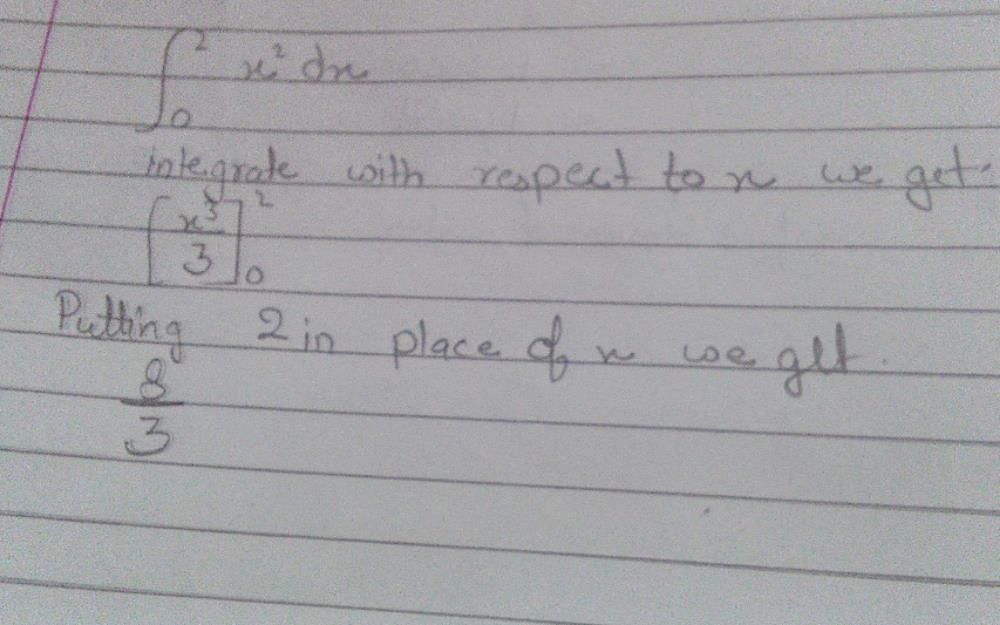 ∫₀² x² dx
integrate with respect to x we get.
[x³/3]₀²
Putting 2 in place of x we get.
8/3